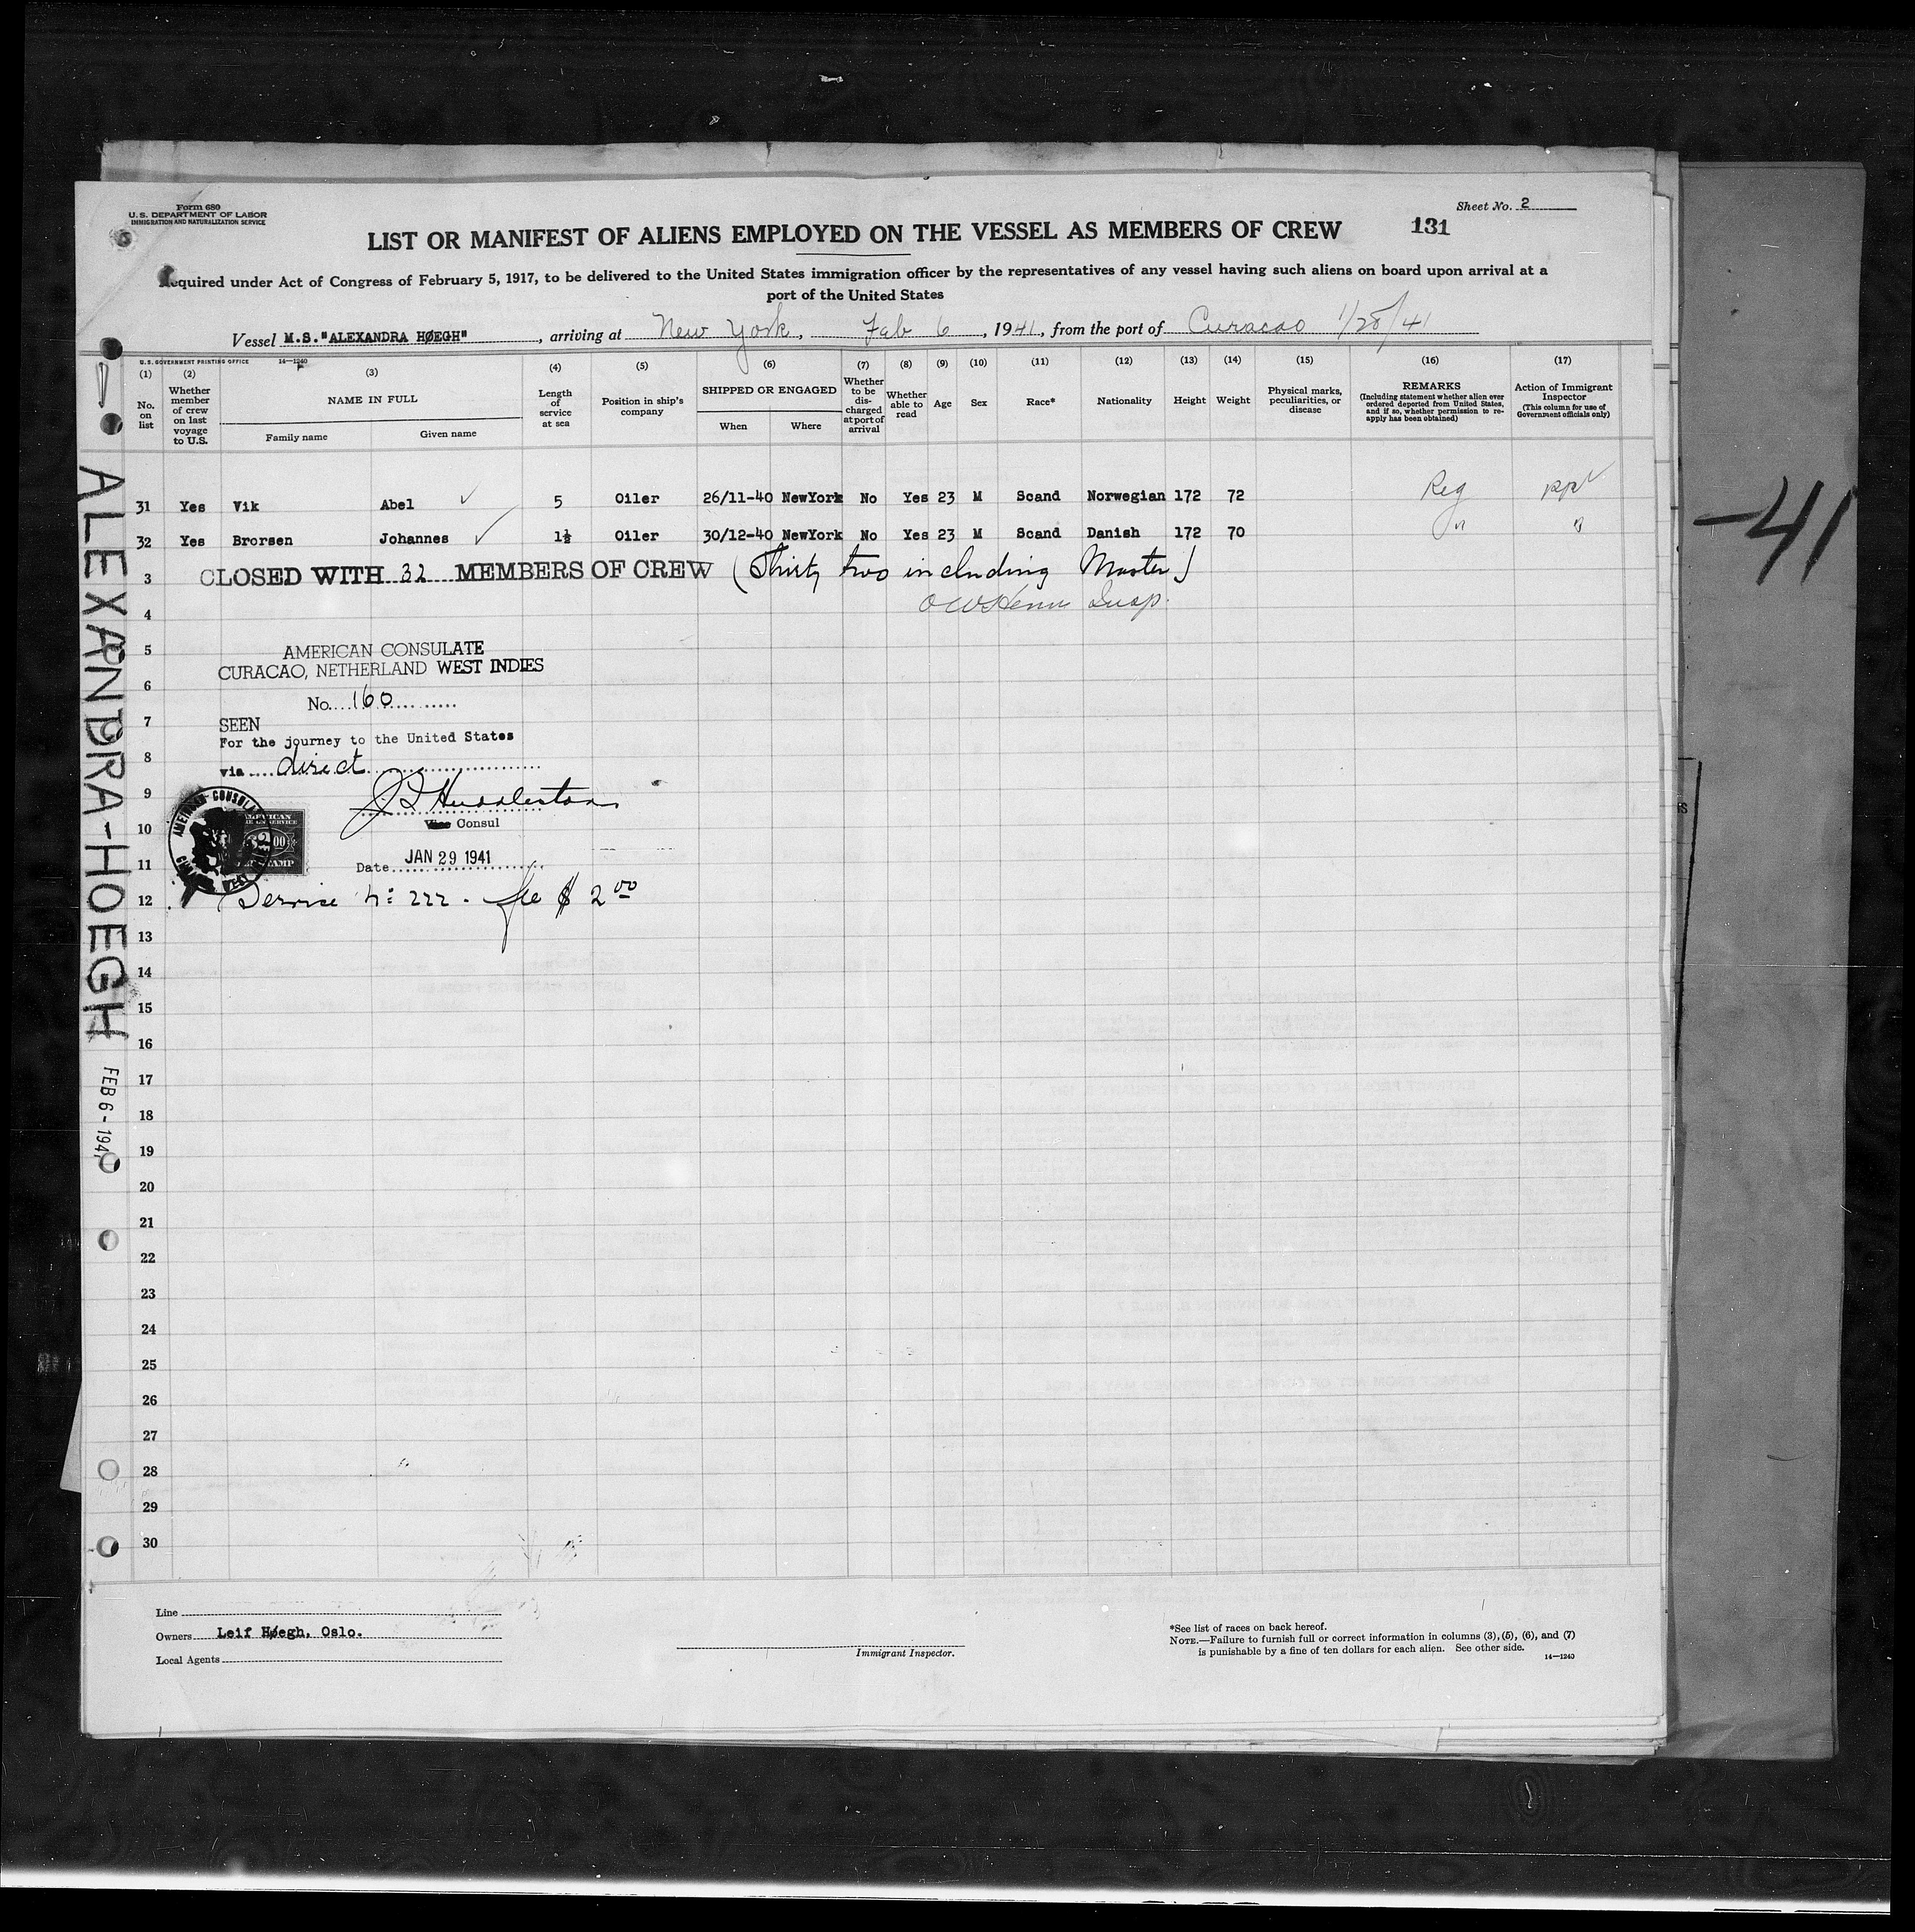 Form 680
U.S. DEPARTMENT OF LABOR
IMMIGRATION AND NATURALIZATION SERVICE
Sheet No. 2
LIST OR MANIFEST OF ALIENS EMPLOYED ON THE VESSEL AS MEMBERS OF CREW
131
Required under Act of Congress of February 5, 1917, to be delivered to the United States immigration officer by the representatives of any vessel having such aliens on board upon arrival at a
port of the United States
Vessel M.S."ALEXANDRA HØEGH", arriving at New York, Feb 6, 1941, from the port of Curacao 1/28/41
U.S. GOVERNMENT PRINTING OFFICE 14—1240
(1) No. on list
(2) Whether member of crew on last voyage to U.S.
(3) NAME IN FULL
Family name Given name
(4) Length of service at sea
(5) Position in ship's company
(6) SHIPPED OR ENGAGED
When Where
(7) Whether to be discharged at port of arrival
(8) Whether able to read
(9) Age
(10) Sex
(11) Race*
(12) Nationality
(13) Height
(14) Weight
(15) Physical marks, peculiarities, or disease
(16) REMARKS (Including statement whether alien ever ordered deported from United States, and if so, whether permission to re-apply has been obtained)
(17) Action of Immigrant Inspector (This column for use of Government officials only)
31 Yes Vik Abel ✓ 5 Oiler 26/11-40 NewYork No Yes 23 M Scand Norwegian 172 72 Reg
32 Yes Brorsen Johannes ✓ 1½ Oiler 30/12-40 NewYork No Yes 23 M Scand Danish 172 70 "  "
3 CLOSED WITH 32 MEMBERS OF CREW (Thirty two including Master)
4 Insp.
5 AMERICAN CONSULATE
CURACAO, NETHERLAND WEST INDIES
6
No. 160
7 SEEN
For the journey to the United States
8 via direct
9 Huddleston
10 Vice Consul
11 Date JAN 29 1941
AMERICAN CONSULA
AMERICAN
$2.00
STAMP
12 Service No: 222. fee $ 2 00
13
14
15
16
17
18
19
20
21
22
23
24
25
26
27
28
29
30
ALEXANDRA-HOEGH
FEB 6-1941
-41
Line
Owners Leif Høegh, Oslo.
Local Agents
Immigrant Inspector.
*See list of races on back hereof.
NOTE.—Failure to furnish full or correct information in columns (3), (5), (6), and (7)
is punishable by a fine of ten dollars for each alien. See other side.
14—1240